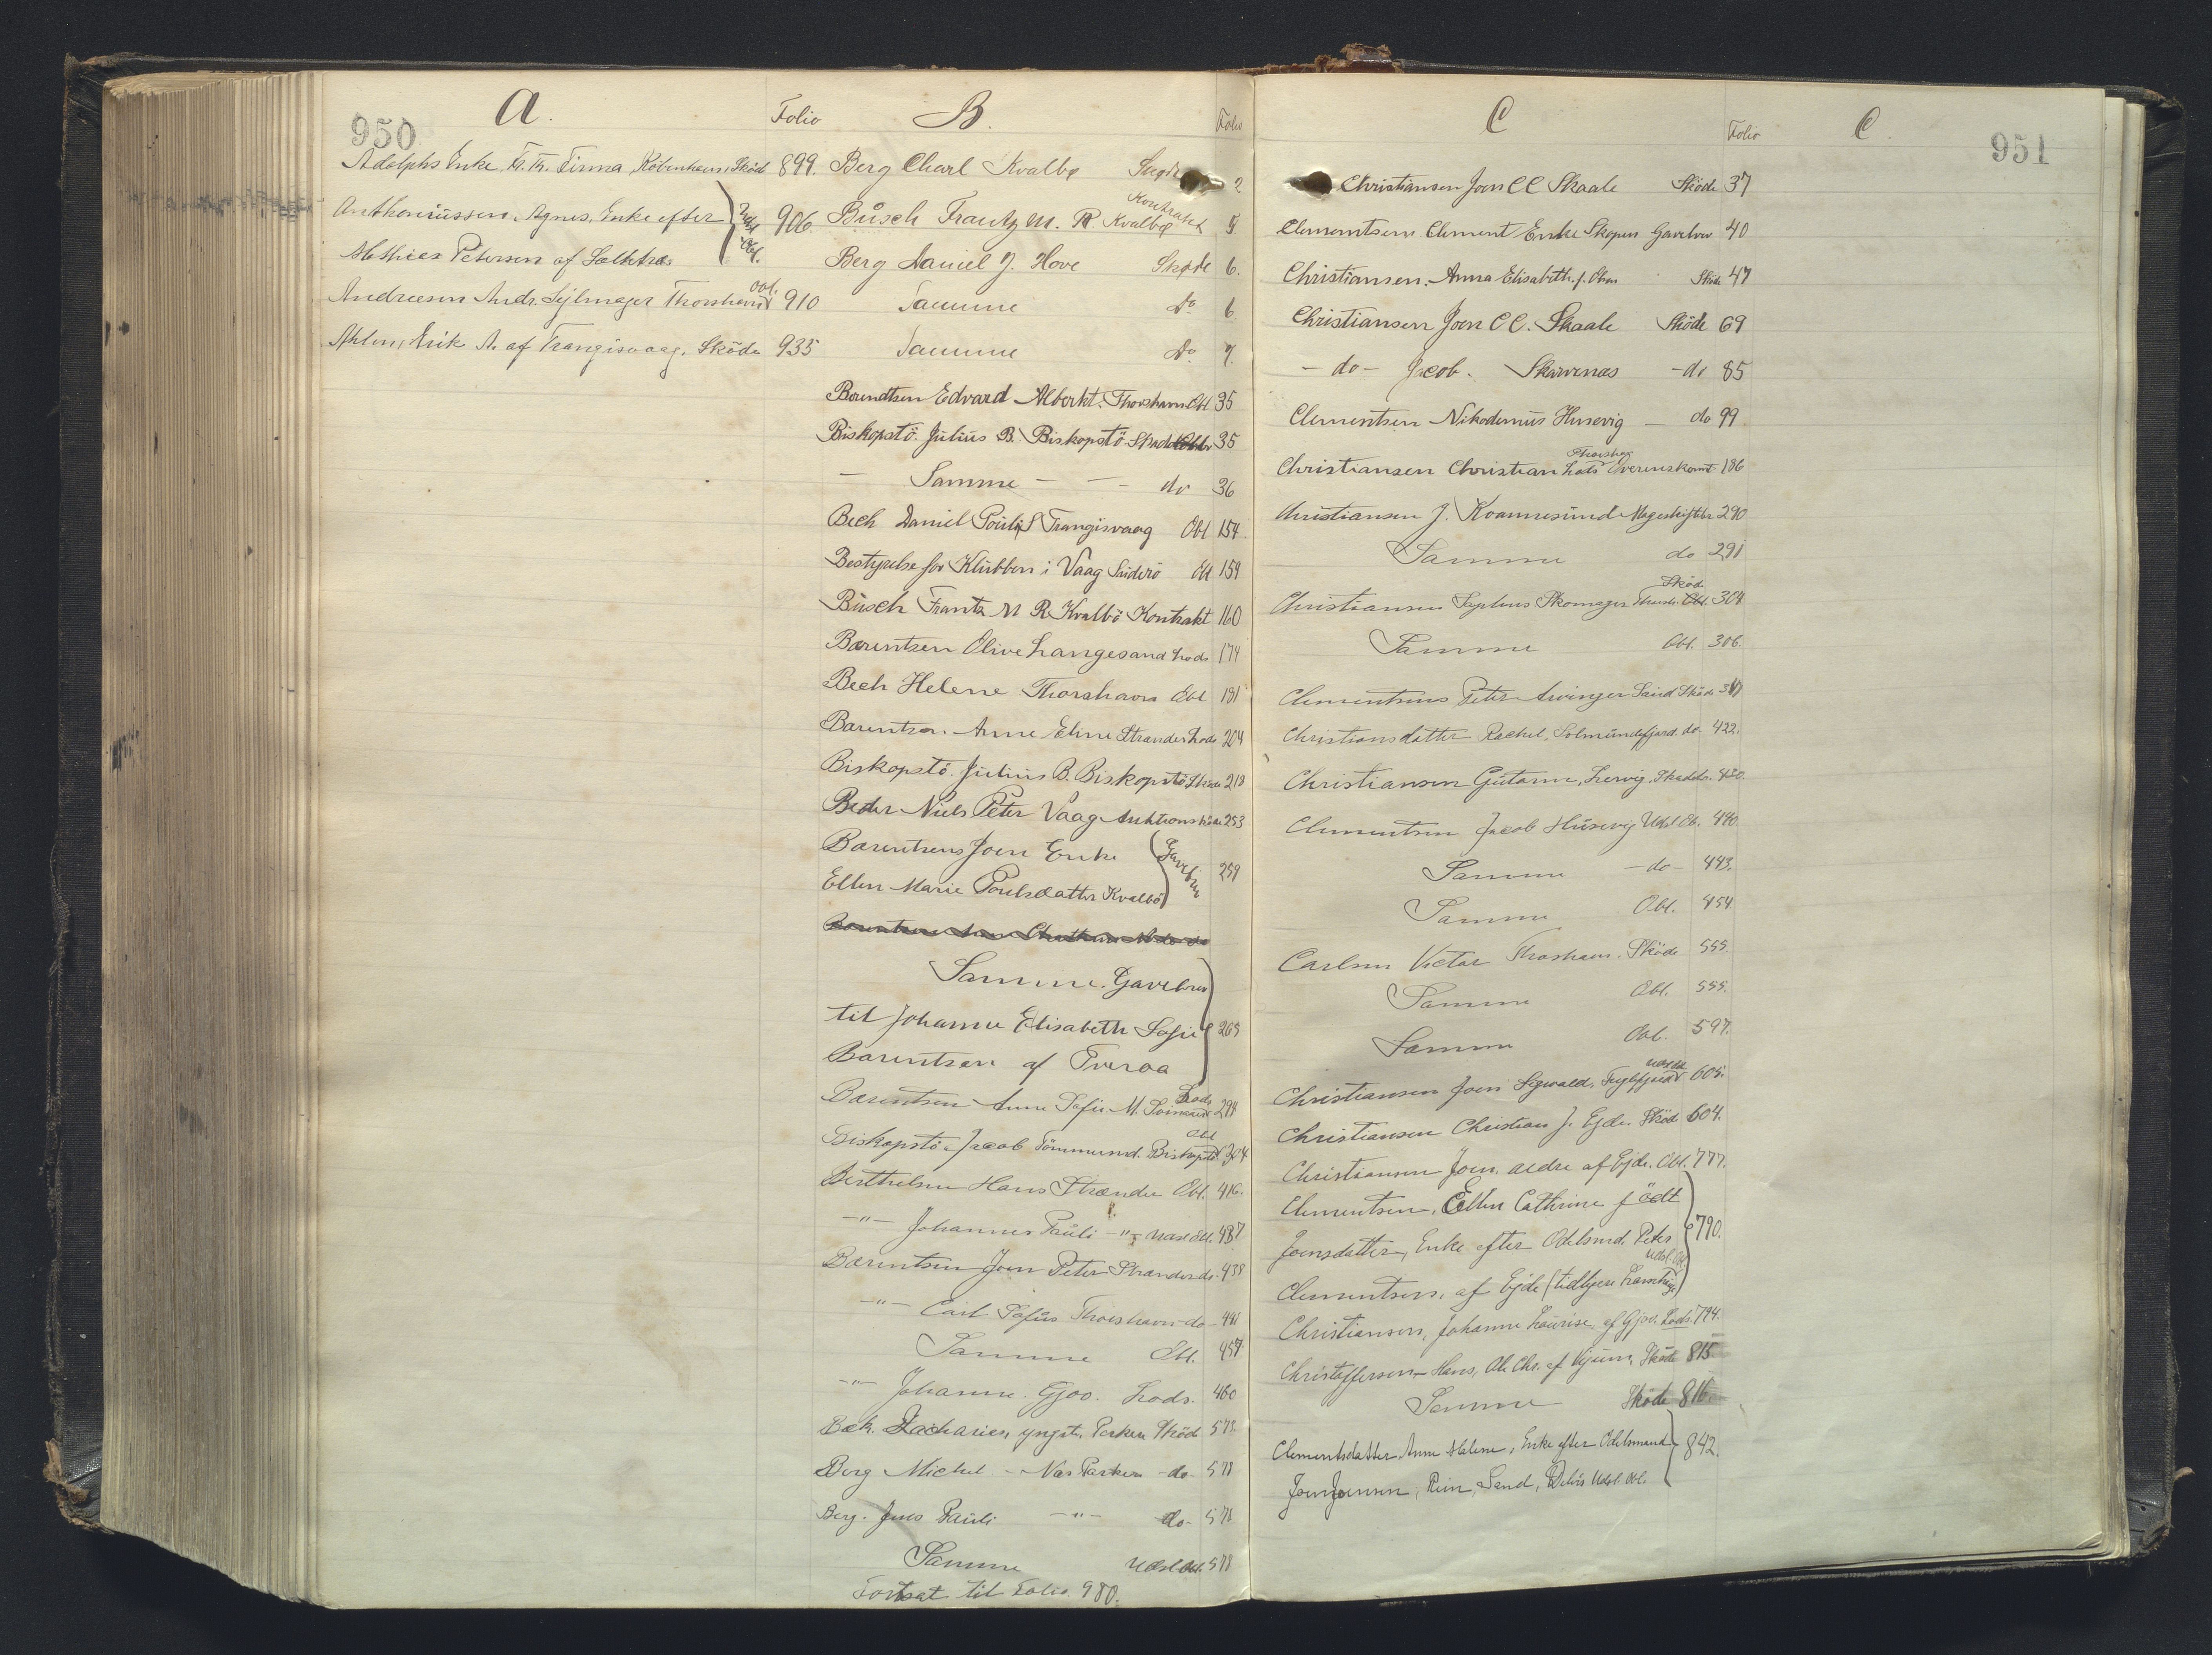 950
A.
Folio
Adolphs Enke, Fr. Th. Firma, Köbenhavn, Sköd 899.
Anthoniüssen, Agnes, Enke efter
Mathias Petersen af Saltnæs Udsl. Obl. 906.
Andreasen Andr. Sejlmager Thorshavn Obl. 910
Ahlen, Erik A. af Trangisvaag, Sköde 935
B.
Folio
Berg Charl Kvalbø 2
Büsch Frantz M. R Kvalbø Kontrakt 5
Berg Daniel J. Hove Skøde 6.
Samme do 6
Samme do 7.
Berendtsen Edvard Alberkt. Thorshavn Obl 35
Biskopstö. Julius B. Biskopstö. 35
- Samme - - do 36
Bech Daniel Trangisvaag Obl 154.
Bestyrelse for Klubben i Vaag Suderö Obl 159
Büsch Frantz M R Kvalbö Kontrakt 160
Barentsen Olive Langesand Lods 174
Bech Helene Thorshavn Obl 181
Barentsen. Anne Eline Strander Lods 204
Biskopstö. Julius B. Biskopstö Sköde 218
Beder Niels Peter Vaag Auktionsköde 253
Barentsens Joen Enke
Ellen Marie Poulsdatter Kvalbö Gavebrev 259
Samme. Gavebrev
til Johanne Elisabeth Sofie 265
Barentsen af Tveraa
Barentsen Anne Sofie M. Lods 294
Biskopstö Jacob Tömmermd. Biskopstö Obl 324
Berthelsen Hans Strander Obl. 416.
-"- Johannes Pauli -"- Udsl Obl. 437
Barentsen Joen Peter Strander do. 438
-"- Carl Sofus Thorshavn do 441
Samme Obl. 457
-"- Johanne. Gjoo. Lods. 460
Bek. Zacharias, yngst, Porkere Sköd 578
Berg Michel - Næs Porkere - do - 578
Berg. Jens Pauli -"- do - 578
Samme Udsl Obl. 578
Fortsat til Folio 980.
C
Folio
C.
951
Christiansen Joen CC Skaale Sköde 37
Clementsens Clement Enke Skopun Gavebrev 40
Christiansen. Anna Elisabeth. f. Olsen Sköde 47
Christiansen Joen CC. Skaale Sköde 69
- do - Jacob. Skarvenæs - do 85
Clementsen Nikodemus Husevig - do 99
Christiansen Christian Lods Thorshavn Overenskomt 186
Christiansen J. Kvannesund Mageskiftebr 290
Samme do 291
Christiansen Skomager Thorsh. Sköde 304
Samme Obl. 306.
Clementsens Peter Sand Sköde
Christiansdatter Rachel, Solmundefjord. do. 422.
Christiansen Gutorm, Lervig.
Clementsen Jacob Husevig Udsl Ob. 490.
Samme - do - 493.
Samme Obl. 454
Carlsen Victor Thorshavn. Sköde 555.
Samme Obl. 555.
Samme Obl. 597.
Christiansen Joen Sigvald, Fuglefjord Udsl Obl 605.
Christiansen Christian J. Ejde. Sköde 604.
Christiansen Joen ældre af Ejde. Obl. 777.
Clementsen, Ellen Cathrine födt
Joensdatter, Enke efter Odelsmd. Peter 790.
Clementsen, af Ejde (tidligere Udsl. Obl.
Christiansen, Johanne Lourise, af Gjov, Lods. 794.
Christoffersen Hans, Ole Chr. af Sköde 815
Samme Sköde 816
Clementsdatter Anne Malene, Enke efter Odelsmand
Joen Joensen, Sand, Udsl. Obl. 842.